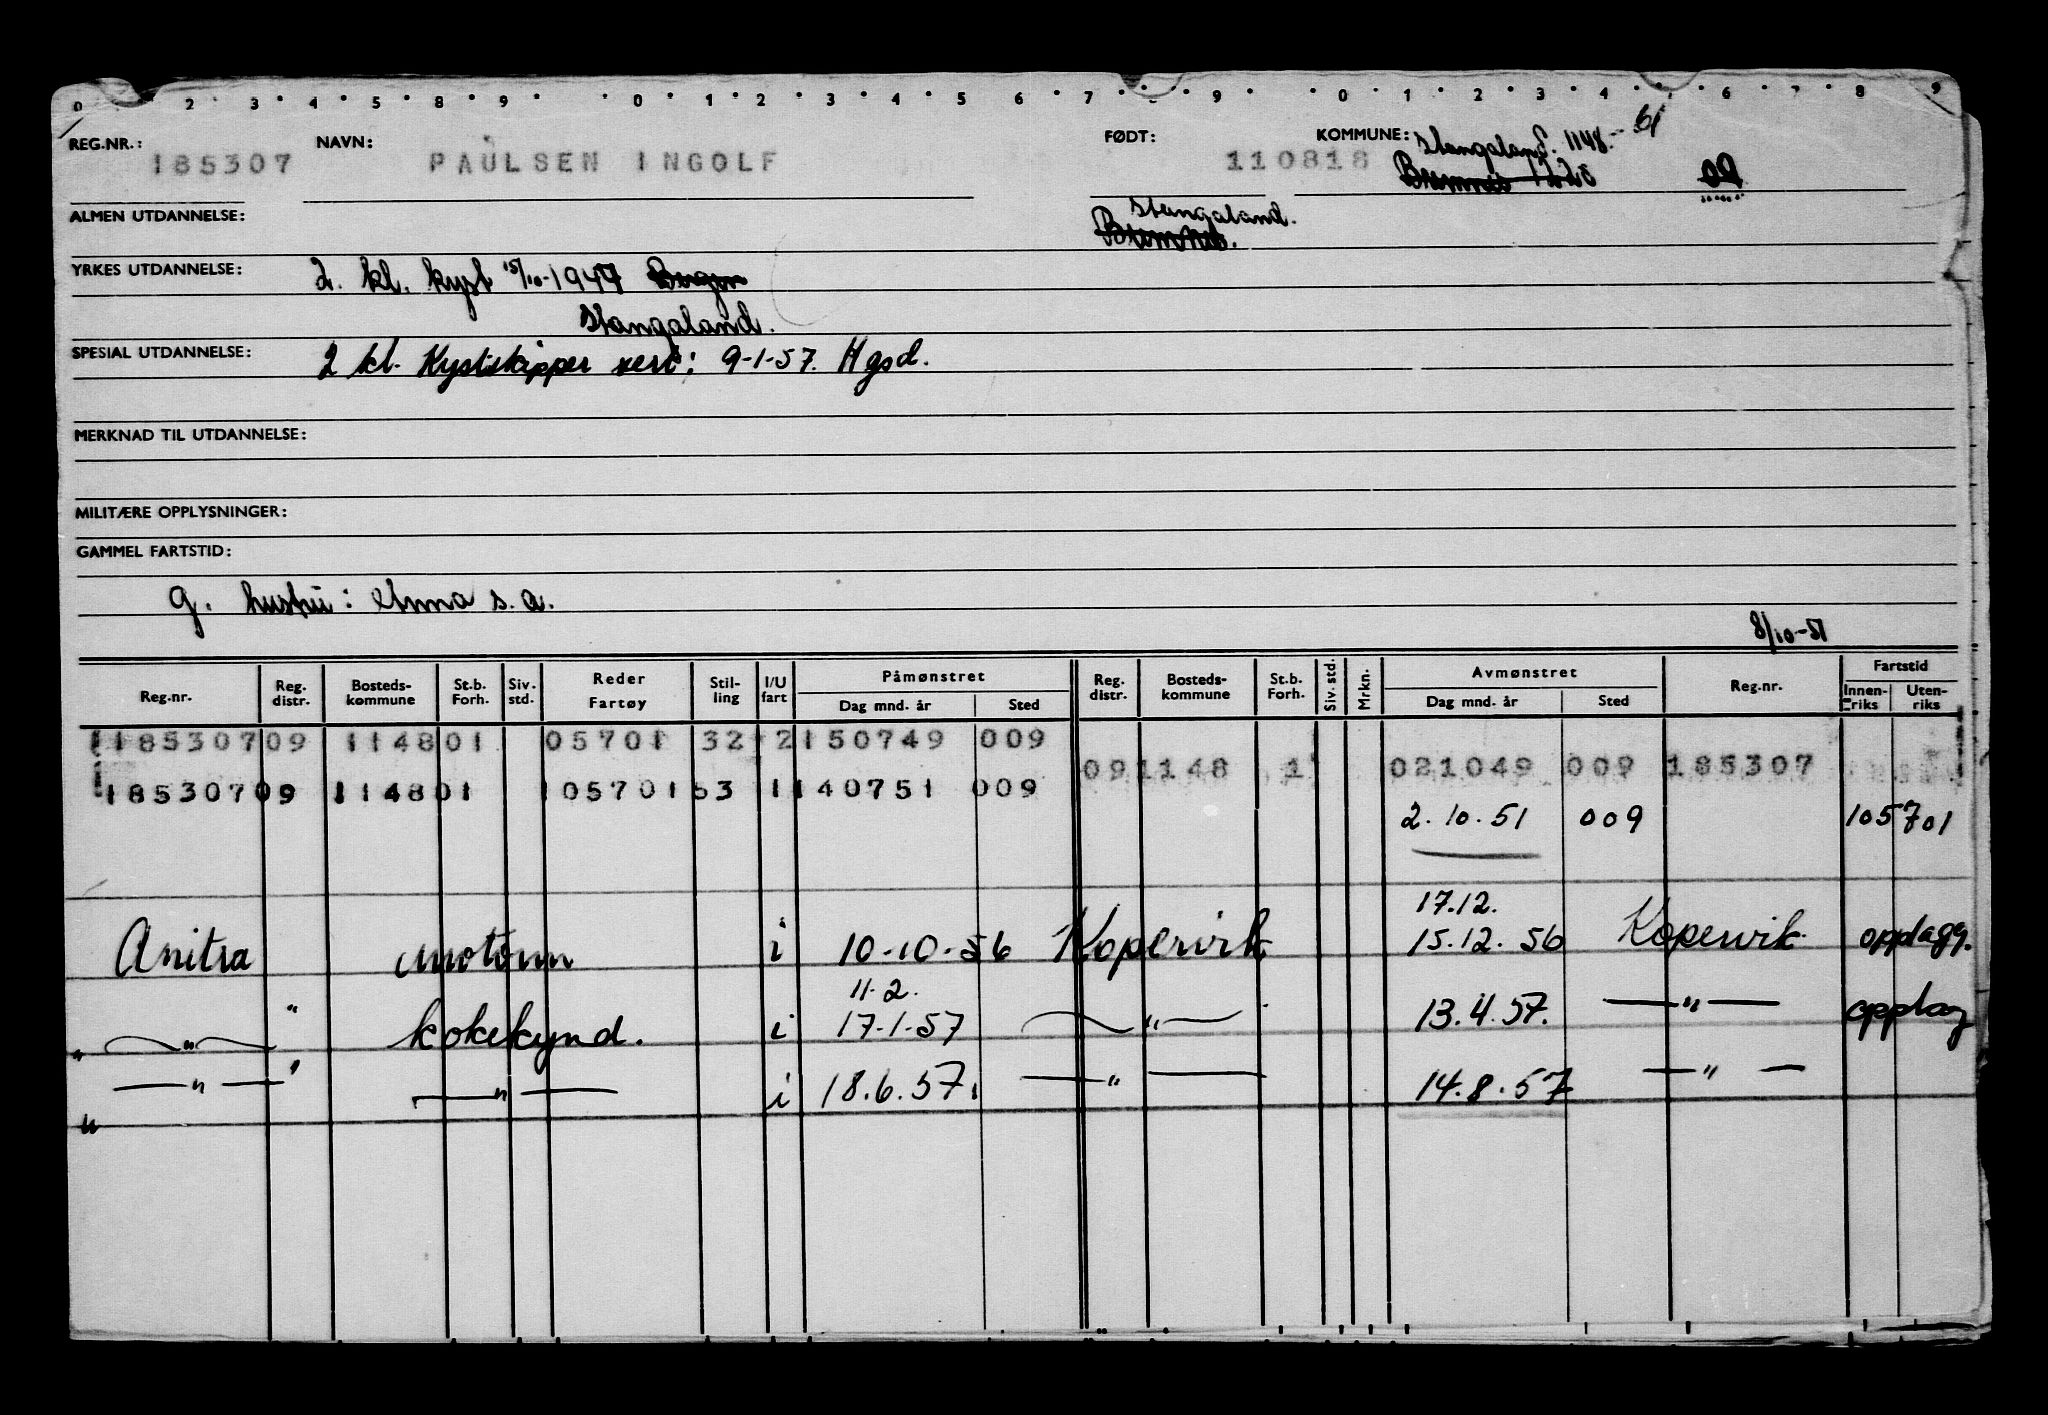 0 2 3 4 5 8 9 0 1 2 3 4 5 6 7 9 0 1 2 3 4 6 7 8 9
REG.NR.: NAVN: FØDT: KOMMUNE: Stangaland. 1148.-- 61
185307 PAULSEN INGOLF 110818 Bremnes
ALMEN UTDANNELSE: Stangaland.
Bremnes.
YRKES UTDANNELSE: 2. kl. kyst 15/10-1947 Bergen
Stangaland.
SPESIAL UTDANNELSE: 2 kl. Kystskipper sert: 9-1-57. Hgsd.
MERKNAD TIL UTDANNELSE:
MILITÆRE OPPLYSNINGER:
GAMMEL FARTSTID:
g. hustru: Anna s. a.
8/10-51
Reg.nr. Reg. distr. Bosteds-kommune St.b. Forh. Siv. std. Reder Fartøy Stil-ling I/U fart Påmønstret Dag mnd. år Sted Reg. distr. Bosteds-kommune St.b. Forh. Siv. std. Mrkn. Avmønstret Dag mnd. år Sted Reg.nr. Fartstid Innen-riks Uten-riks
118530709 114801 05701 32 2 150749 009
091148 1 021049 009 185307
18530709 114801 105701 53 1 140751 009
2.10.51 009 105701
17.12.
Anitra motorm i 10-10-56 Kopervik 15.12.56 Kopervik opplagg.
11.2.
" — " — kokekynd. i 17-1-57 — " — 13.4.57. — " — opplag
— " — " — " — i 18.6.57. — " — 14.8.57 — " —
"